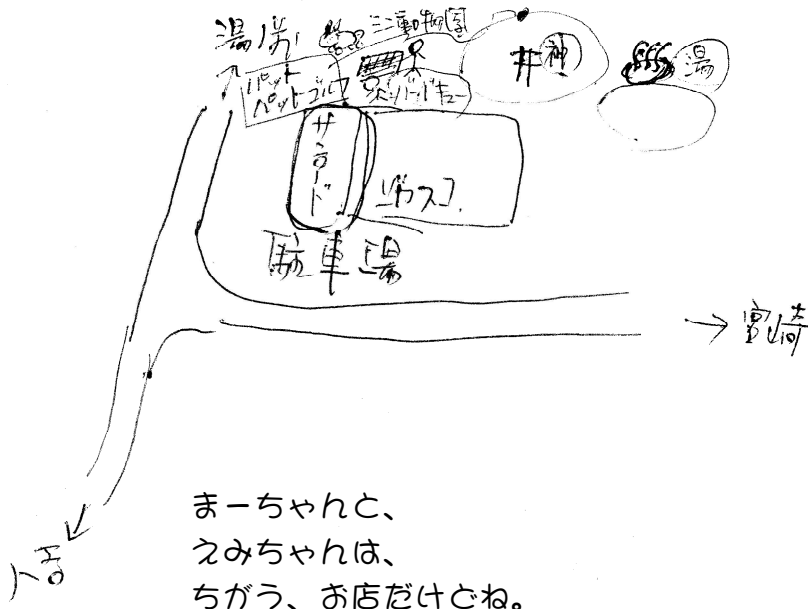 湯前
ミニ動物園
パット
ペットゴルフ
バーベキュー
井神
湯
サンロード
駐車場
→宮崎
人吉
まーちゃんと、
えみちゃんは、
ちがう、お店だけどね。